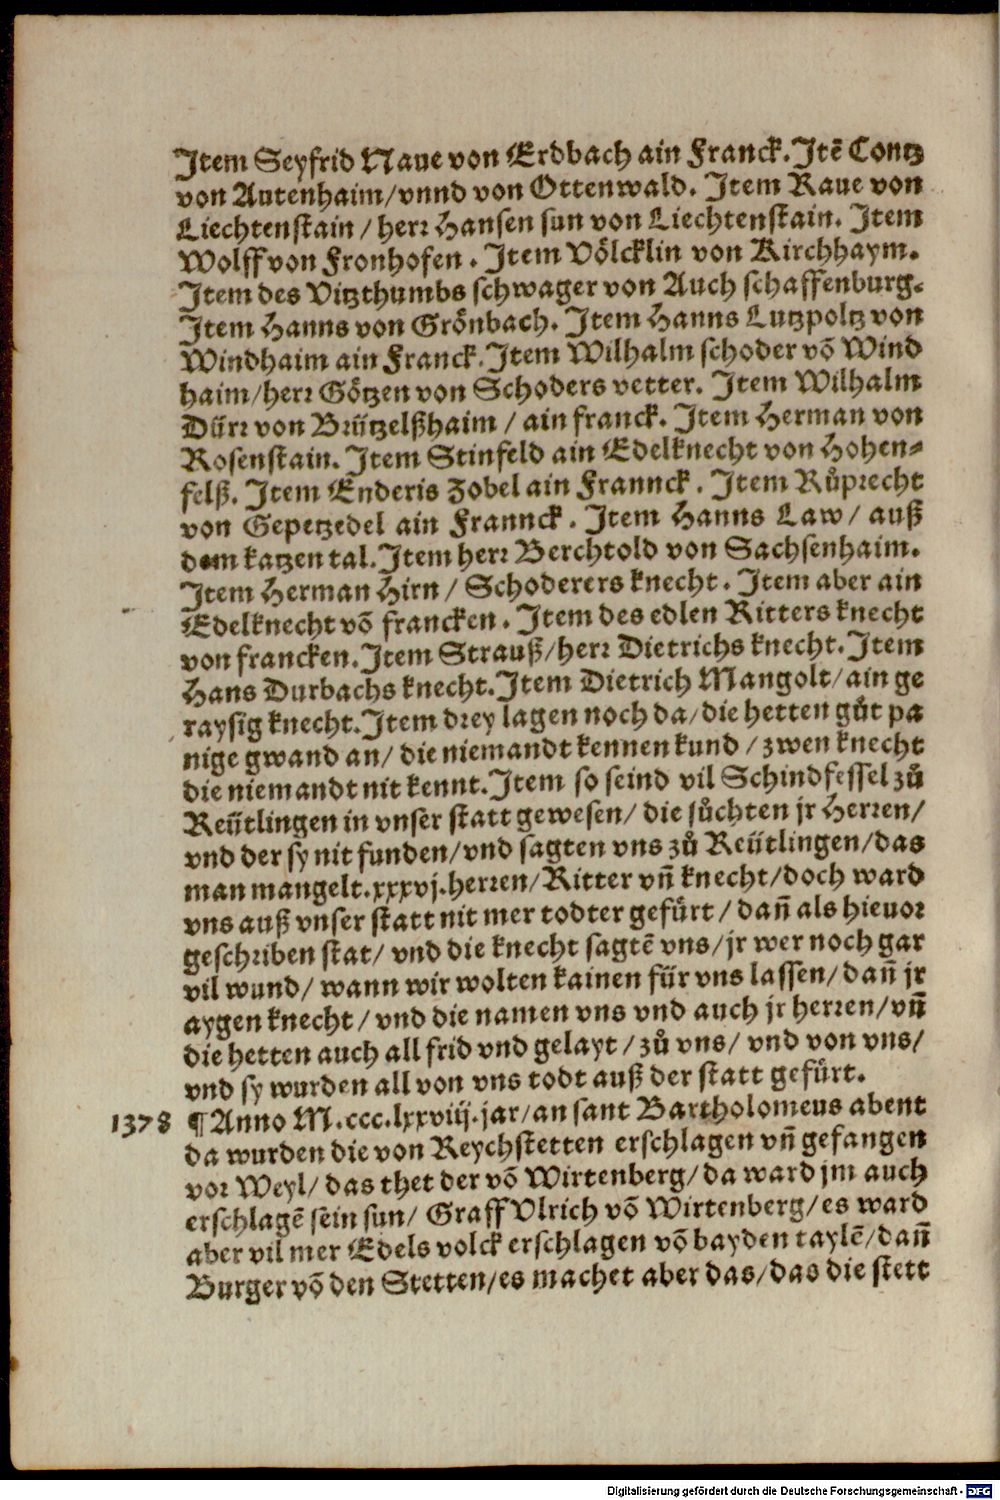 Item Seyfrid Naue von Erdbach ain Franck. Itẽ Contz
von Autenhaim/vnnd von Ottenwald. Item Raue von
Liechtenstain/herr Hansen sun von Liechtenstain. Item
Wolff von Fronhofen. Item Völcklin von Kirchhaym.
Item des Vitzthumbs schwager von Auch schaffenburg.
Item Hanns von Grönbach. Item Hanns Lutzpoltz von
Windhaim ain Franck. Item Wilhalm schoder võ Wind
haim/herr Götzen von Schoders vetter. Item Wilhalm
Dürr von Brützelßhaim/ain franck. Item Herman von
Rosenstain. Item Stinfeld ain Edelknecht von Hohen-
felß. Item Enderis Zobel ain Frannck. Item Růprecht
von Gepetzedel ain Frannck. Item Hanns Law/auß
dem katzen tal. Item herr Berchtold von Sachsenhaim.
Item Herman Hirn/Schoderers knecht. Item aber ain
Edelknecht võ francken. Item des edlen Ritters knecht
von francken. Item Strauß/herr Dietrichs knecht. Item
Hans Durbachs knecht. Item Dietrich Mangolt/ain ge
raysig knecht. Item drey lagen noch da/die hetten gůt pa
nige gwand an/die niemandt kennen kund/zwen knecht
die niemandt nit kennt. Item so seind vil Schindfessel zů
Reütlingen in vnser statt gewesen/die sůchten jr Herren/
vnd der sy nit funden/vnd sagten vns zů Reütlingen/das
man mangelt.xxxvj.herren/Ritter vñ knecht/doch ward
vns auß vnser statt nit mer todter gefürt/dañ als hieuor
geschriben stat/vnd die knecht sagtẽ vns/jr wer noch gar
vil wund/wann wir wolten kainen für vns lassen/dañ jr
aygen knecht/vnd die namen vns vnd auch jr herren/vñ
die hetten auch all frid vnd gelayt/zů vns/vnd von vns/
vnd sy wurden all von vns todt auß der statt gefürt.
1378 ¶Anno M.ccc.lxxviij.jar/an sant Bartholomeus abent
da wurden die von Reychstetten erschlagen vñ gefangen
vor Weyl/das thet der võ Wirtenberg/da ward jm auch
erschlagẽ sein sun/Graff Vlrich võ Wirtenberg/es ward
aber vil mer Edels volck erschlagen võ bayden taylẽ/dañ
Burger võ den Stetten/es machet aber das/das die stett
Digitalisierung gefördert durch die Deutsche Forschungsgemeinschaft - DFG